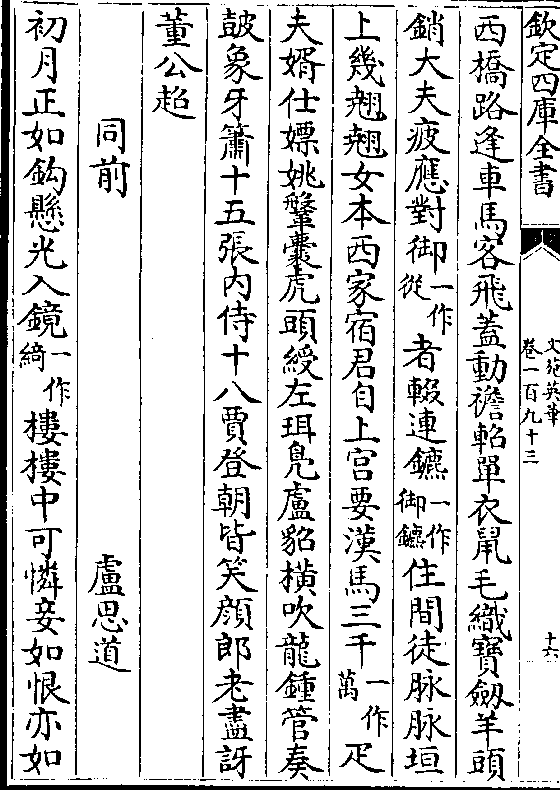 欽定四庫全書
文苑英華
卷一百九十三
十六
西橋路逢車馬客飛蓋動襜軺單衣鼠毛織寶劔羊頭
銷大夫疲應對御一作從者輟連鑣一作御鑣住間徒脉脉垣
上幾翹翹女本西家宿君自上宫要漢馬三千一作萬疋
夫婿仕嫖姚鞶囊虎頭綬左珥鳬盧貂横吹龍鍾管奏
鼓象牙簫十五張内侍十八賈登朝皆笑顔郎老盡訝
董公超
同前
盧思道
初月正如鈎懸光入鏡一作綺樓樓中可憐妾如恨亦如